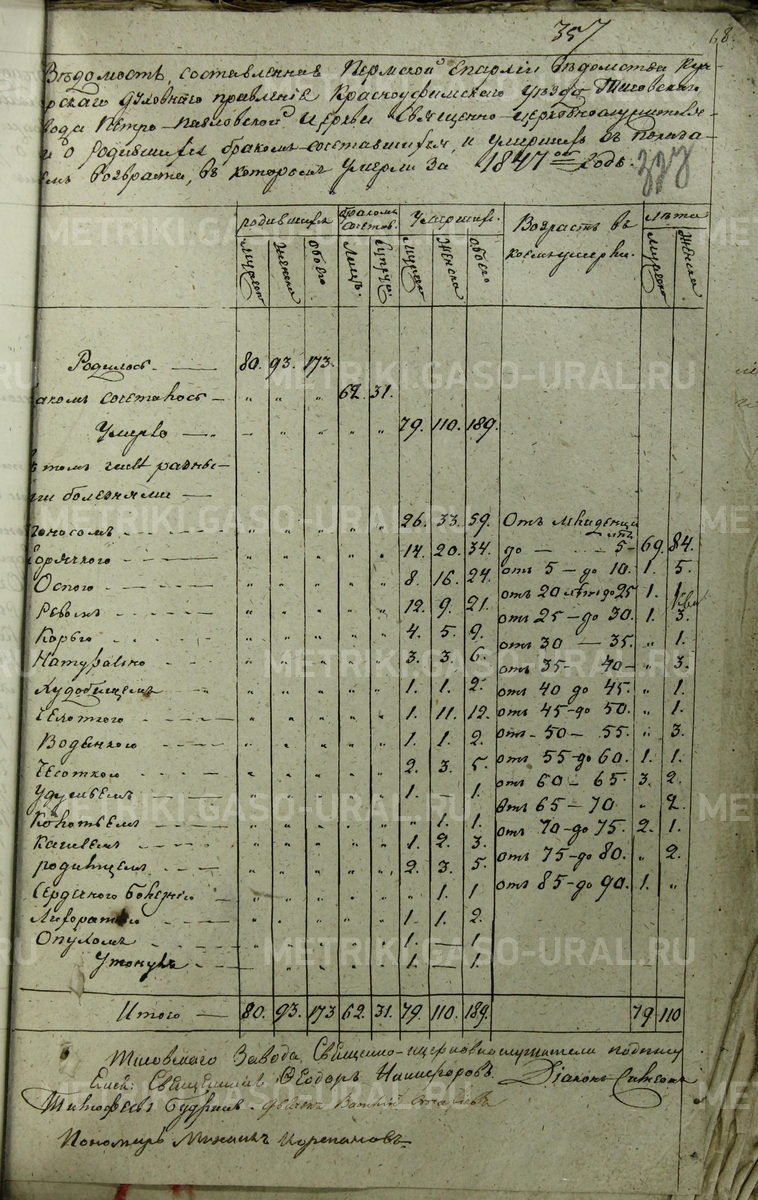 357
68.
Вѣдомость, составленная Пермской Епархіи Вѣдомства
скаго духовнаго правленія Красноуфимскаго уѣзда Тисовскаго
вода Петро-Павловской Церкви Священно-церковнослужителя-
и о родившихся, бракомъ составшихся, и умершихъ въ
емъ возрастѣ, въ которомъ умерли за 1847 Годъ.
родившихся бракомъ состав. Умершихъ. Возрастъ въ коемъ умерли. лѣта
мужеска женска обоего лицъ. супруж. мужеска женска обоего мужеска женска
Родилось 80. 93. 173.
бракомъ составось 62. 31.
Умерло 79. 110. 189.
въ томъ числѣ разны-
ми болезнями
Поносомъ 26. 33. 59. Отъ младенца
Горячкого 14. 20. 34. до лѣтъ 5 69. 84.
Оспого 8. 16. 24. отъ 5 - до 10. 1. 5.
Ревомъ 12. 9. 21. отъ 20 лѣтъ до 25 1. 1.
Корью 4. 5. 9. отъ 25 - до 30. 1. 3.
Натурально 3. 3. 6. отъ 30 — 35. 1.
Худобищемъ 1. 1. 2. отъ 35 - 40 3.
Чехоткого 1. 11. 12. отъ 40 до 45. 1.
Водянкого 1. 1. 2. отъ 45 - до 50. 1.
Чесоткою 2. 3. 5. отъ 50 - 55. 3.
Удушьемъ 1. — 1. отъ 55 - до 60. 1. 1.
1. 1. отъ 60 - 65. 3. 2.
Кашлемъ 1. 2. 3. отъ 65 - 70 2.
родимцемъ 2. 3. 5. отъ 70 - до 75. 2. 1.
Сердечного болезнію 1. 1 отъ 75 - до 80. 2.
1. 1. 2. отъ 85 - до 90. 1.
Опухомъ 1. — 1.
Утонувъ 1. — 1.
Итого 80. 93. 173 62. 31. 79. 110. 189. 79. 110
Тисовскаго Завода, Священно-церковнослужители
Священникъ Ѳеодоръ Никифоровъ. Діаконъ Симеонъ
Пономарь Михаилъ
METRIKI.GASO-URAL.RU